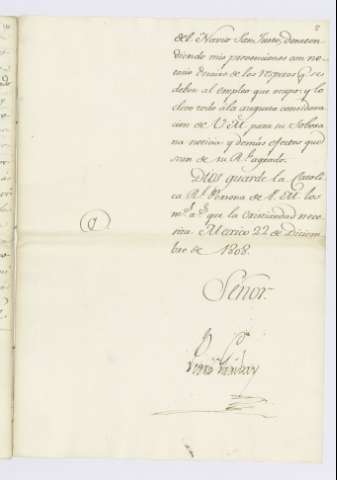 del Navio San Justo, desaten-
diendo mis prevenciones con no-
torio de los respetos q.e se
deben al empleo que ocupo; y lo
elevo todo á la augusta considera-
cion de V.M. para su Sobera-
na noticia y demás efectos que
sean de su R.l agrado.
Dios guarde la Catoli-
ca R.l Persona de V.M. los
m.s a.s que la Cristiandad nece-
sita. Mexico 22 de Diciem-
bre de 1808.
Señor.